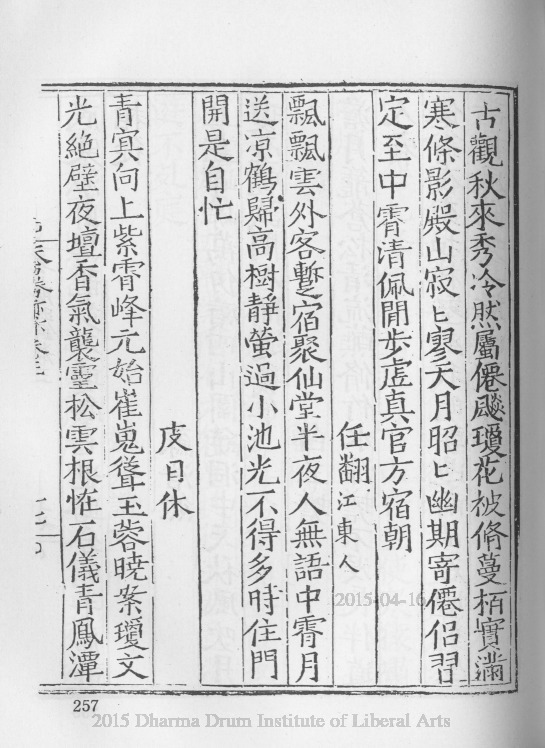 古觀秋來秀冷然屬僊飈瓊花被脩蔓栢實滿
寒條影殿山寂匕寥天月昭匕幽期寄僊侶習
定至中霄清佩聞步虛真官方宿朝
任翻江東人
飄飄雲外客蹔宿聚仙堂半夜人無語中霄月
送凉鶴歸高樹靜螢過小池光不得多時住門
開是自忙
皮日休
青㝠向上紫霄峰元始崔嵬聳玉蓉曉案瓊文
光絶壁夜壇香氣襲靈松雲根恠石儀青鳳潭
257
2015-04-16
2015 Dharma Drum Institute of Liberal Arts